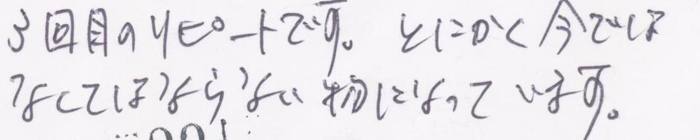 3回目のリピートです。とにかく今では
なくてはならない物になっています。